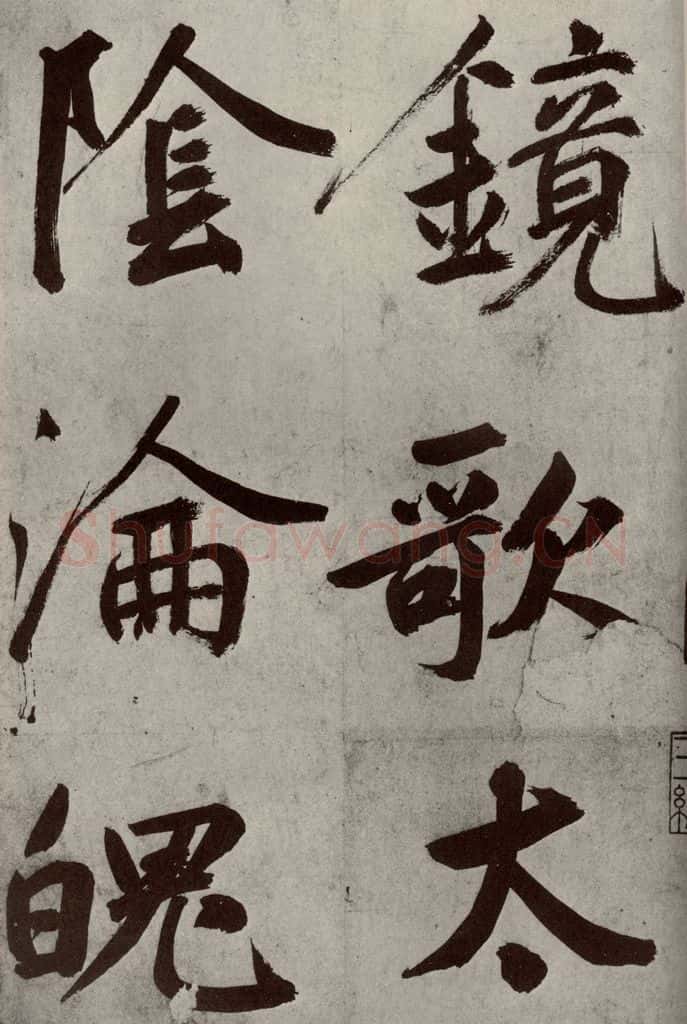 鏡歌太
陰淪魄
Shufawang.CN